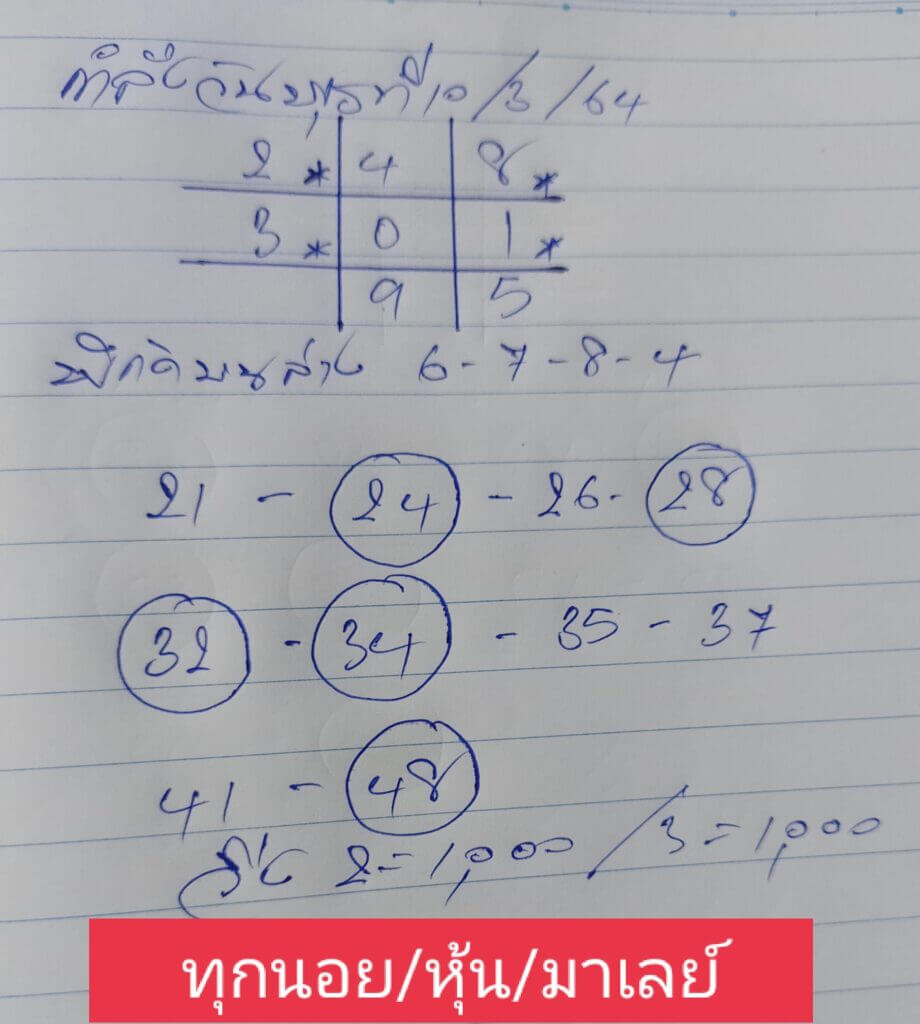 วันพุธที่ 10/3/64
2* 4 8*
3* 0 1*
9 5
บนล่าง 6-7-8-4
21 - 24 - 26 - 28
32 - 34 - 35 - 37
41 - 48
วิ่ง 2=1,000 / 3=1,000
ทุกนอย/หุ้น/มาเลย์